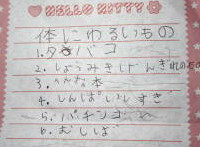 HELLO KITTY
体にわるいもの
1.タバコ
2.しょうみきげんぎれのもの
3.へんな本
4.しんぱいしすぎ
5.パチンコ
6.むしば